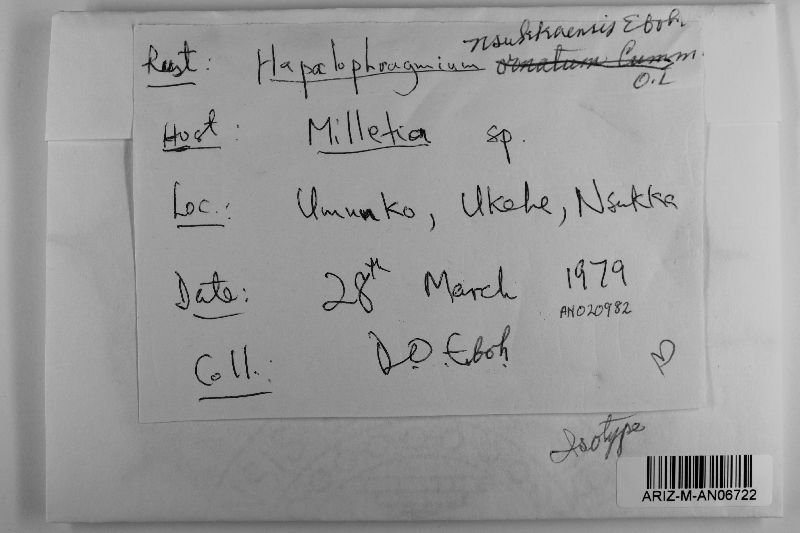 nsukkaensis Eboh
Rust: Hapalophragmium ornatum Cumm.
O.L
Host: Milletia sp.
Loc.: Umunko, Ukehe, Nsukka
Date: 28th March 1979
AN020982
Coll.: D.O. Eboh
Isotype
ARIZ-M-AN06722